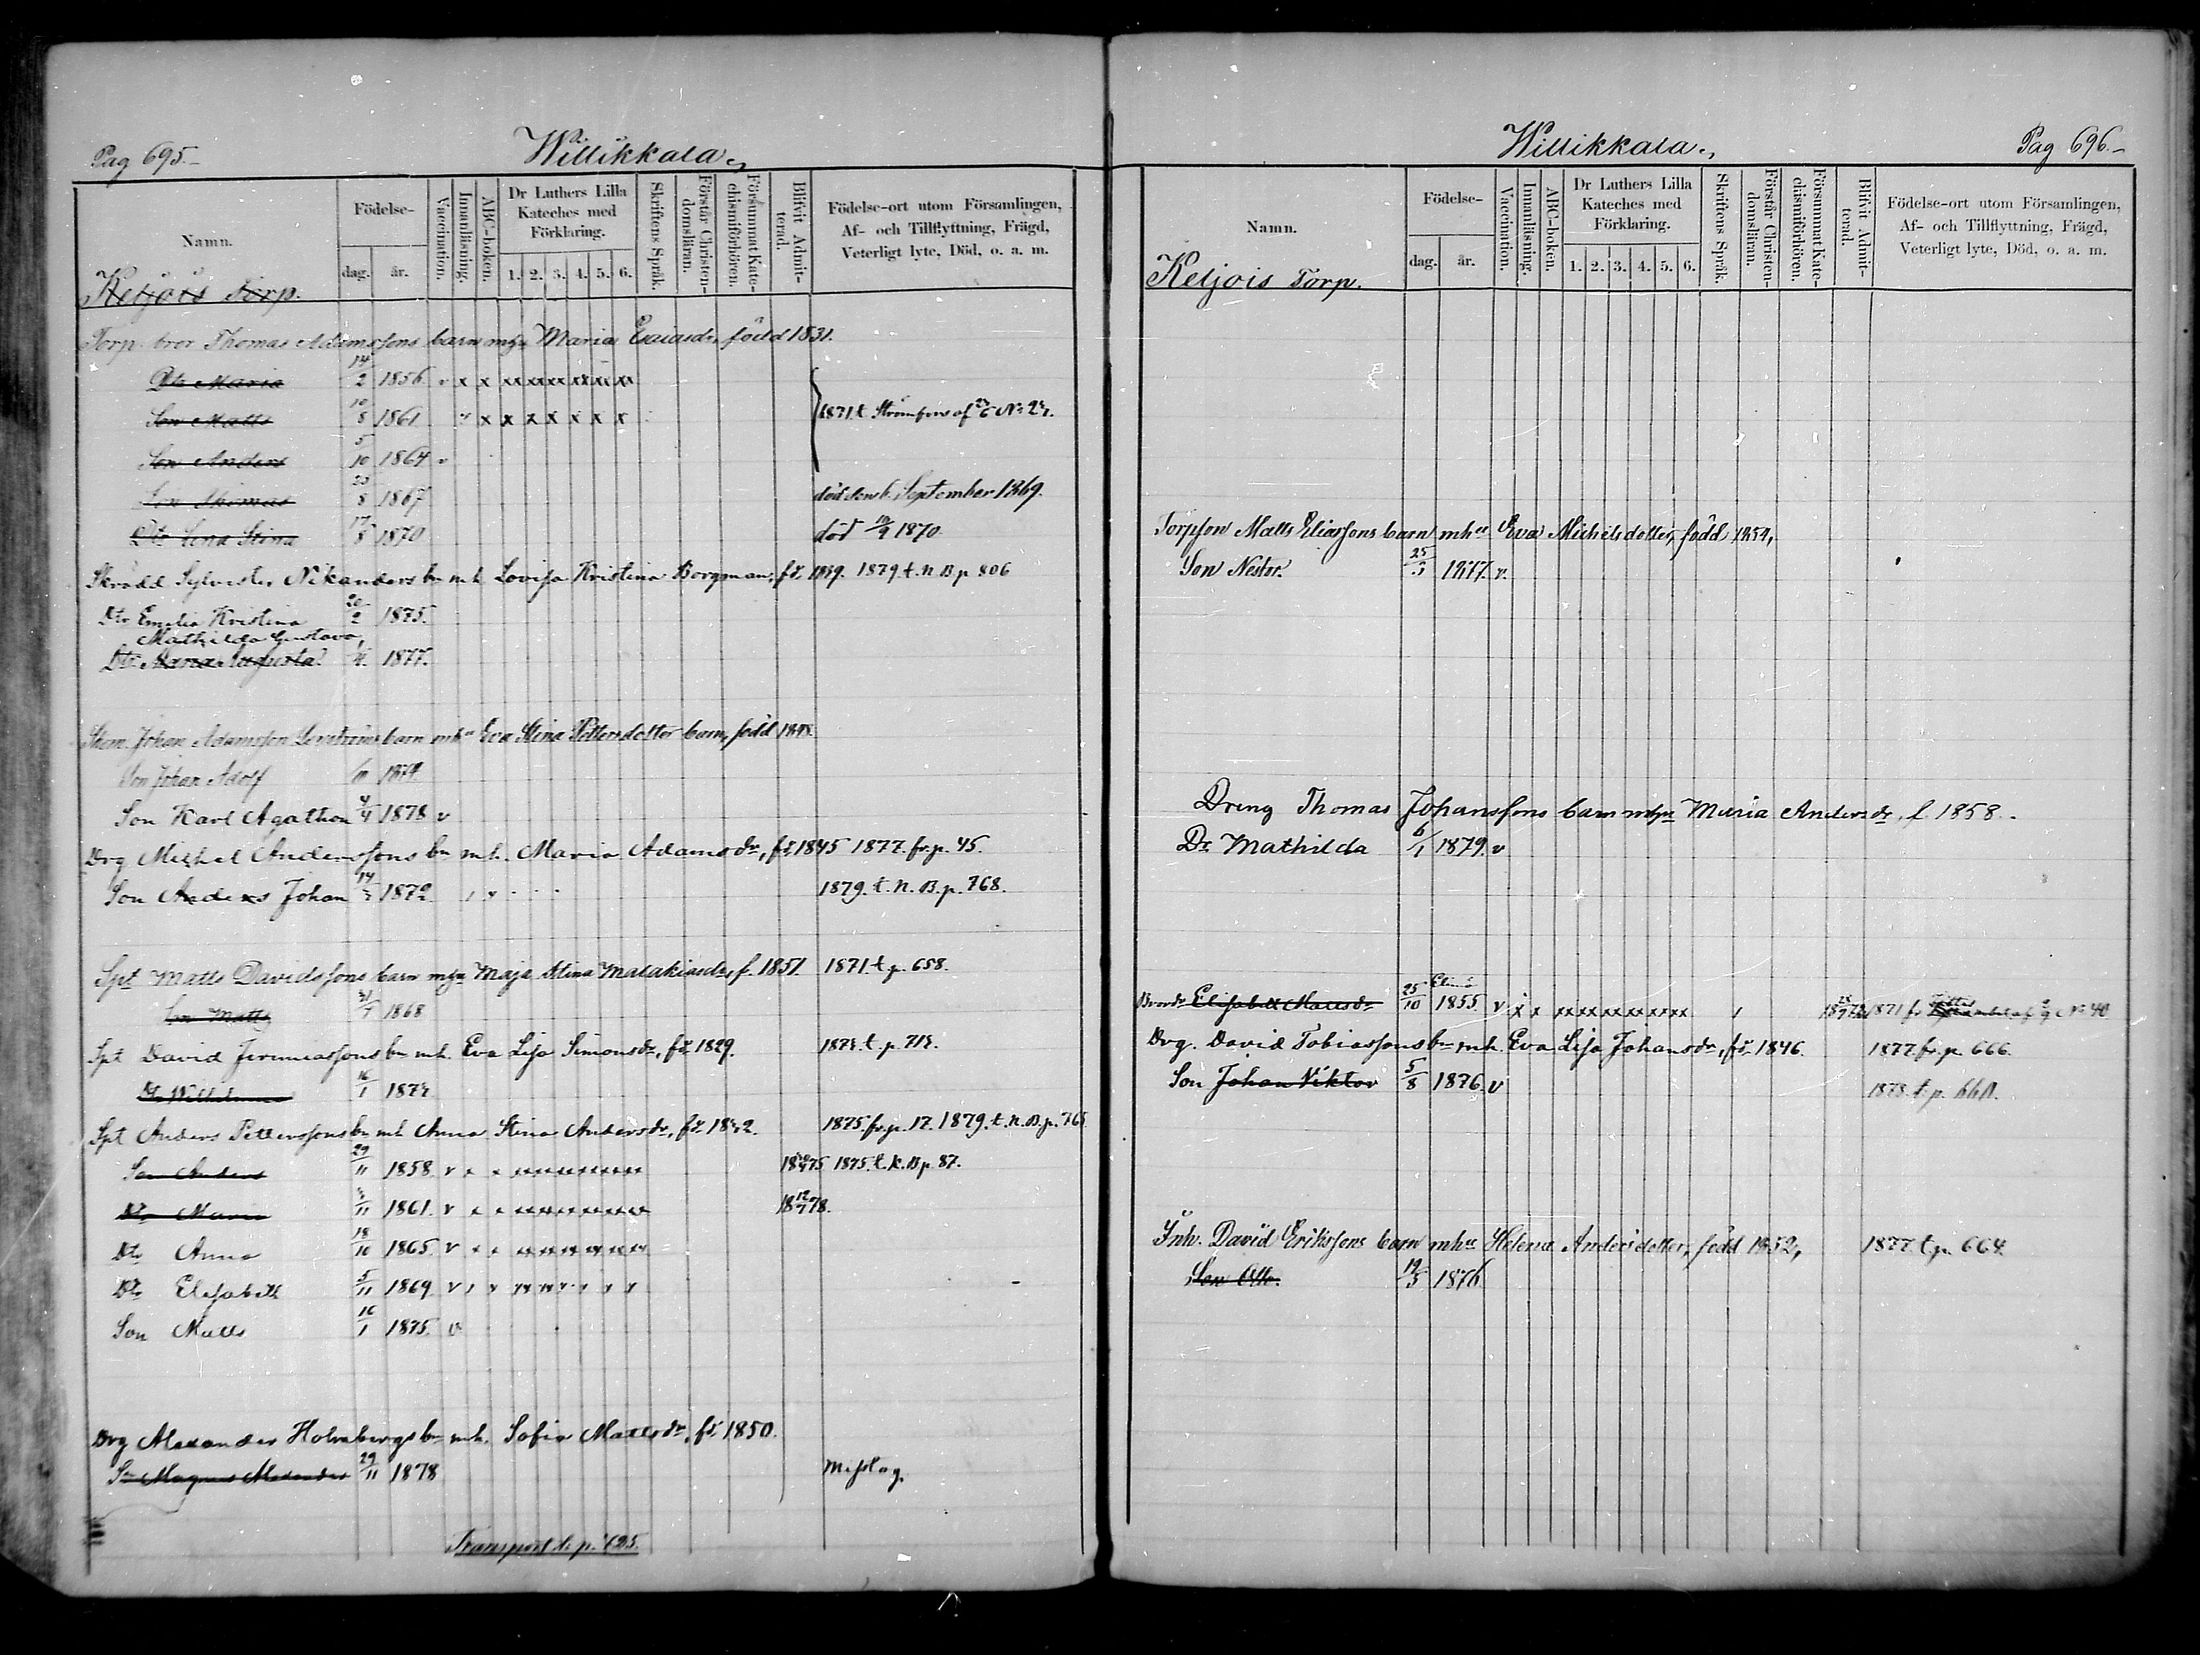 Pag 695.
Willikkala.
Namn.
Födelse-
dag. år.
Vaccination.
Innanläsning.
ABC-boken.
Dr Luthers Lilla Kateches med Förklaring.
1. 2. 3. 4. 5. 6.
Skriftens Språk.
Förstår Christendomsläran.
Försummat Katechismiförhören.
Blifvit Admitterad.
Födelse-ort utom Församlingen, Af- och Tillflyttning, Frägd, Veterligt lyte, Död, o. a. m.
Ketjois Torp.
Torp. bror Thomas Adamssons barn mhn Maria Esaiasdr, född 1831.
Dtr Maria 14/2 1856 v x x
Son Matts 10/8 1861 x x x x x x x
1871 t. Strömfors
Son Anders 5/10 1864 v
Son Thomas 23/8 1867 död den 6 September 1869.
Dtr Lena Stina 17/8 1870 död 19/9 1870.
Skrädd Sylvester Nikanders bn mh. Lovisa Kristina Borgman, fd. 1839. 1879 t. N. B p 806
Dtr Emelia Kristina 20/2 1875.
Mathilda Gustava,
Dtr Maria Augusta 1877.
Johan Adamsson barn mha Eva Stina Pettersdotter barn, född 1848.
Son Johan Adolf 1874
Son Karl Agathon 4/4 1878 v
Drg Michel Anderssons bn mh. Maria Adamsdr, fd. 1845 1877. fr. p. 45.
Son Anders Johan 1872 1879. t. N. B. p. 768.
Spt Matts Davidssons barn mhn Maja Stina Malakiasdr, f. 1851. 1871 t p. 658.
Son Matts 1868
Spt David Jeremiassons bn mh. Eva Lisa Simonsdr, fd. 1829. t. p. 714.
Dtr Wilhelmina 16/1
Spt Anders Petterssons bn mh Anna Stina Andersdr, fd. 1875. fr. p. 17. 1879. t. N. B. p.
Son Anders 29/11 1858 v 1875. t. k. B p. 87.
Dtr Maria 1861. v
Dtr Anna 18/10 1865. v
Dtr Elisabeth 5/11 1869 v
Son Matts 16/1 1875. v
Drg Alexander Holmbergs bn mh. Sofia Mattsdr, fd. 1850.
Sn Magnus Alexander 29/11 1878
Transport t. p. 625.
Willikkala.
Pag 696.
Namn.
Födelse-
dag. år.
Vaccination.
Innanläsning.
ABC-boken.
Dr Luthers Lilla Kateches med Förklaring.
1. 2. 3. 4. 5. 6.
Skriftens Språk.
Förstår Christendomsläran.
Försummat Katechismiförhören.
Blifvit Admitterad.
Födelse-ort utom Församlingen, Af- och Tillflyttning, Frägd, Veterligt lyte, Död, o. a. m.
Ketjois Torp.
Torpson Matts Eliassons barn mha Eva Michelsdotter, född 1854,
Son Nestor. 1877. v.
Dreng Thomas Johanssons barn mhn Maria Andersdr. f. 1858.
Dr Mathilda 6/1 1879. v
Elisabeth Mattsdr 25/10 1855. v x x 1871 fr
Drg. David Tobiassons bn mh. Eva Lisa Johansdr, fd. 1846. 1877. fr. p. 666.
Son Johan Viktor 5/8 1876. v 1878. t. p. 660.
Inh. David Erikssons barn mha Helena Andersdotter, född 1852, 1877. t. p. 664.
Son Otto. 19/3 1876